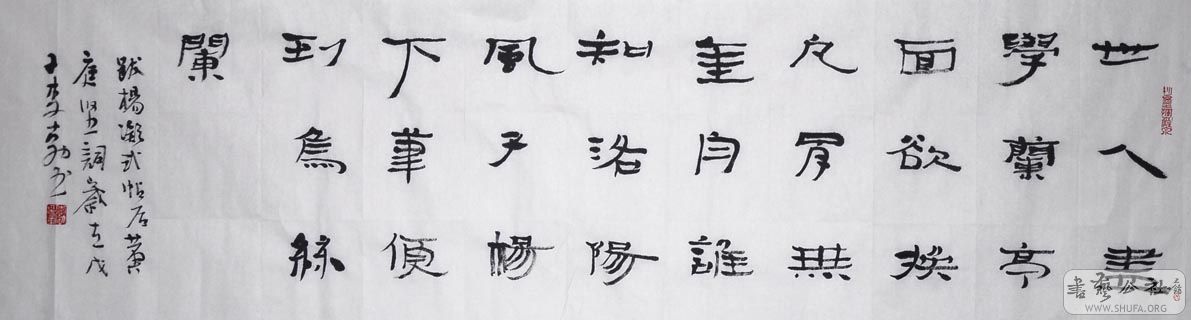 世人盡
學蘭亭
面欲換
凡骨無
金丹誰
知洛陽
風子楊
下筆便
到烏絲
闌
跋楊凝式帖后黃
庭坚詞歲在戊
子李书
書藝公社
WWW.SHUFA.ORG